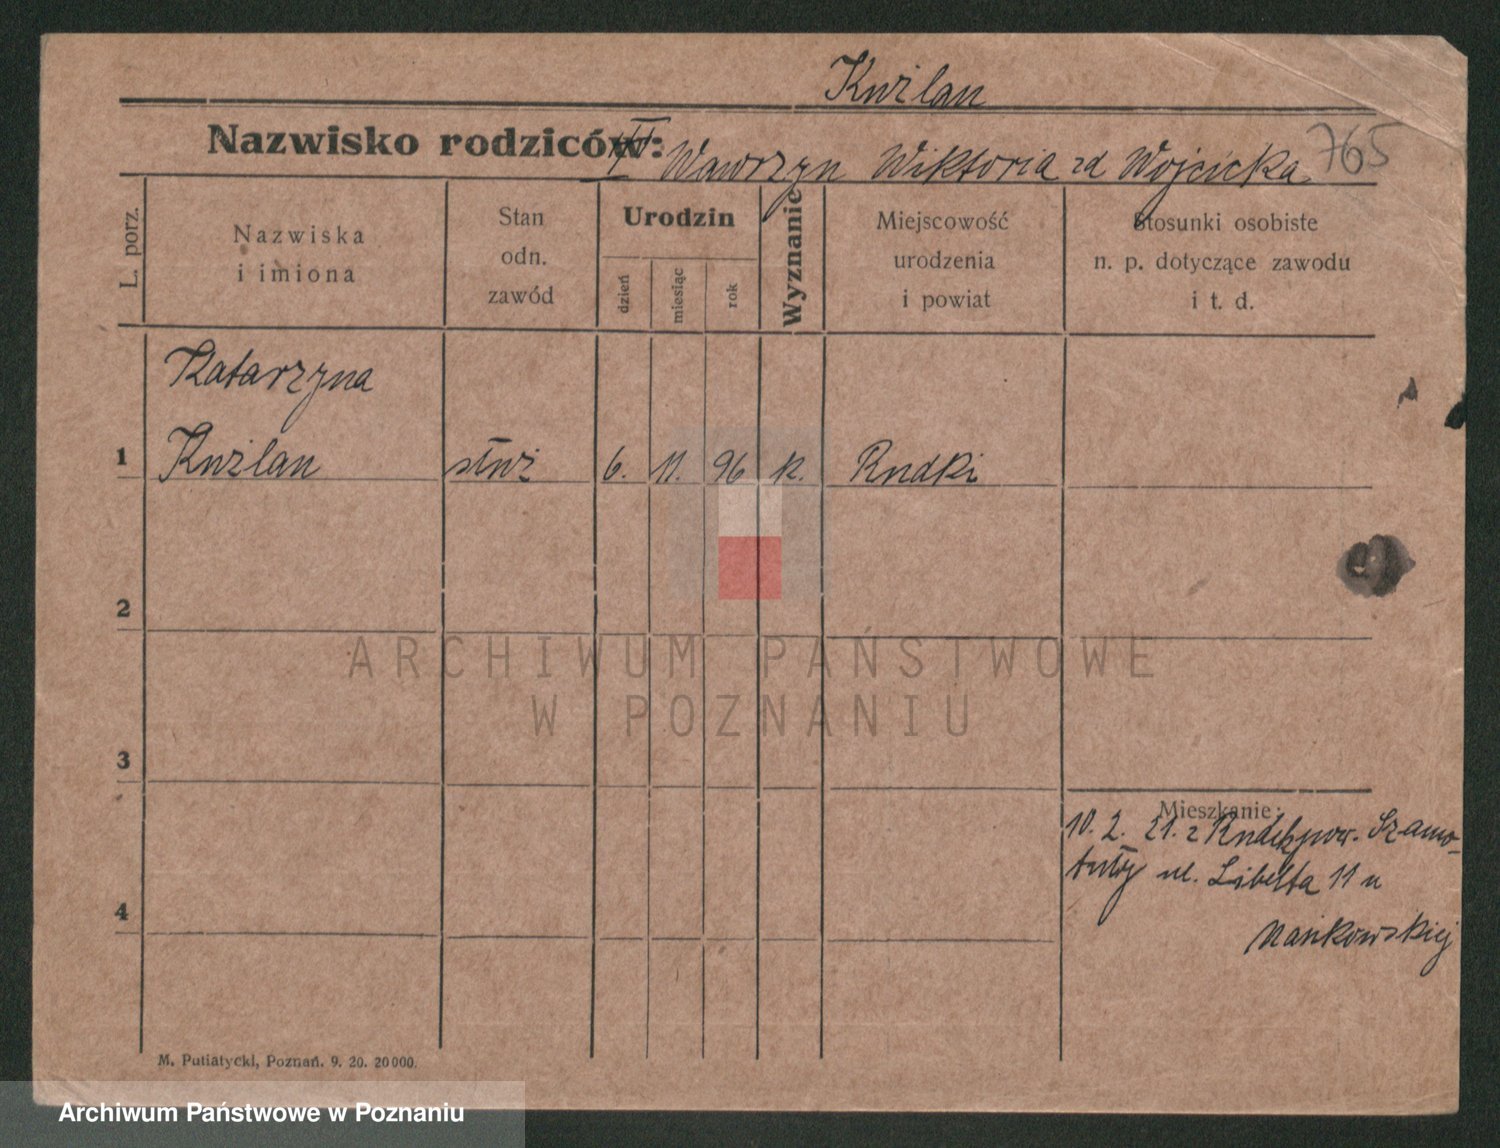 Kużlan
Nazwisko rodziców: Wawrzyn Wiktoria zd Wojcicka 765
L. porz.
Nazwiska
i imiona
Stan
odn.
zawód
Urodzin
dzień
miesiąc
rok
Wyznanie
Miejscowość
urodzenia
i powiat
Stosunki osobiste
n. p. dotyczące zawodu
i t. d.
Katarzyna
1 Kużlan służ 6. 11. 96 k. Rudki
2
3
4
Mieszkanie:
10. 2. 21. z Rudek pow. Szamo-
tuły ul. Libelta 11 u
Mańkowskiej
M. Putiatycki, Poznań. 9. 20. 20000.
ARCHIWUM PAŃSTWOWE
W POZNANIU
Archiwum Państwowe w Poznaniu